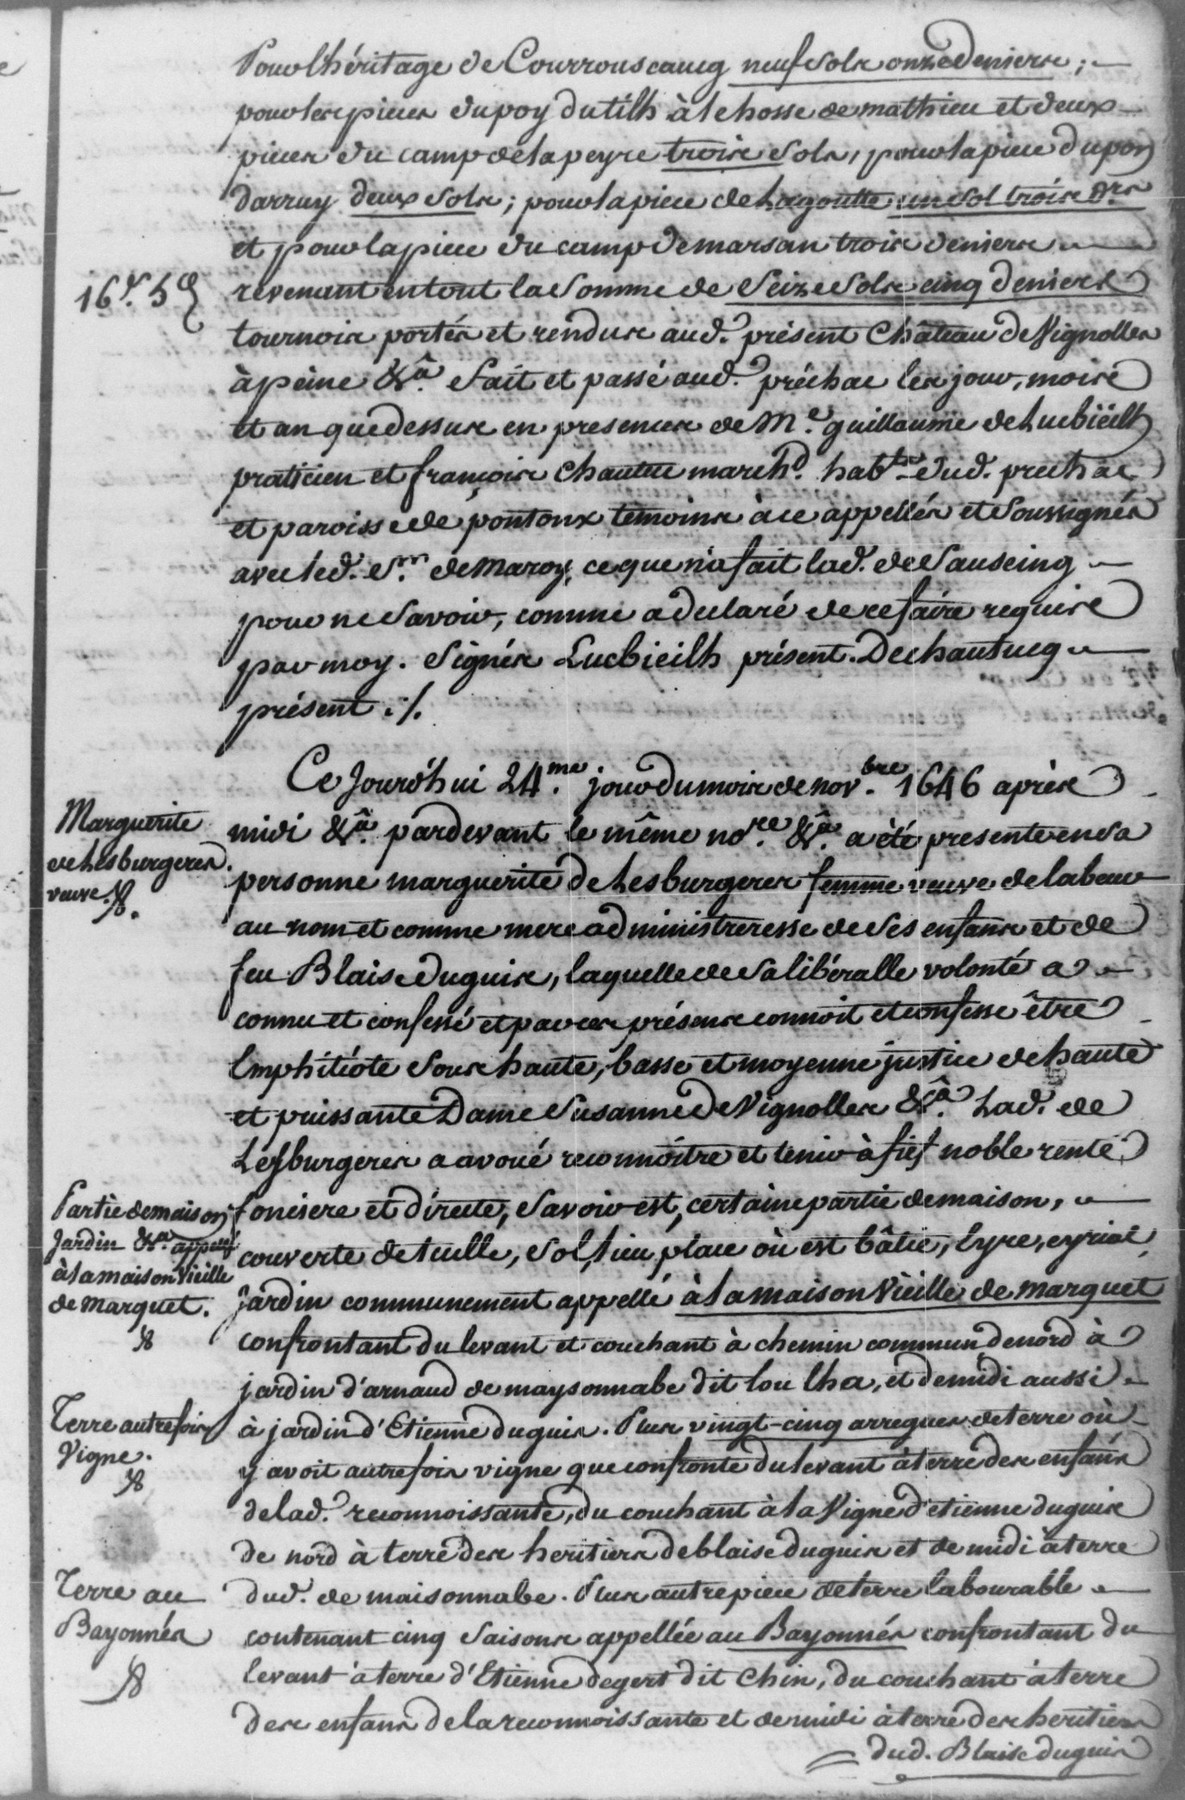 Pour l'héritage de Courrouscaucq neuf sols onze deniers ;
pour les pieces du poy du tilh à lehosse de mathieu et deux
pieces du camp de lapeyre trois sols, pour la piece du poy
darruy deux sols ; pour la piece de Lagoutte un sol trois drs
et pour la piece du camp de marsan trois deniers
16s. 5d
revenant en tout la somme de Seize sols cinq deniers
tournois portés et rendus aud. présent Château de Vignolles
à peine &a. fait et passé aud. préchac les jour, mois
et an que dessus en presences de Me. guillaume de Lucbieilh
praticien et françois chautuc marchd. habts dud. prechac
et paroisse de pontonx temoins à ce appellés et Soussignés
avec led. Sr. de Maroy, ce que n'a fait lad. de Sauseing
pour ne Savoir, comme a declaré de ce faire requise
par moy. Signés Lucbieilh présent. Dechautucq
présent ./.
Ce Jourd'hui 24me. jour du mois de novbre. 1646 après
Marguerite
de Lesburgeres
veuve.
midi &a. pardevant le même nore. &a. a été presente en sa
personne marguerite de Lesburgeres femme veuve de labeur
au nom et comme mere administreresse de ses enfans et de
feu Blaise duguis, laquelle de sa libéralle volonté a
connu et confessé et par ces présens connoit et confesse être
Emphitiote sous haute, basse et moyenne justice de haute
et puissante Dame Susanne de Vignolles &a. Lad. de
Lesburgeres a avoué reconnoitre et tenir à fief noble rente
Partie de maison
Jardin &a. appellé
à la maison Vieille
de Marquet.
fonciere et directe, savoir est, certaine partie de maison,
couverte de teulle, sol, lieu, place où est bâtie, Eyre, eyrial
Jardin communement appellé à la maison Vieille de marquet
confrontant du levant et couchant à chemin commun de nord à
jardin d'arnaud de maysonnabe dit lou lha, et de midi aussi
Terre autrefois
Vigne.
à jardin d'Etienne duguis. Plus vingt-cinq arregues de terre où
y avoit autrefois vigne que confronte du levant à terre des enfans
de lad. reconnoissante, du couchant à la Vigne d'etienne duguis
de nord à terre des heritiers de blaise duguis et de midi à terre
Terre au
Bayonnés
dud. de maisonnabe. Plus autre piece de terre labourable
contenant cinq saisons appellée au Bayonnés confrontant du
levant à terre d'Etienne degert dit Chin, du couchant à terre
des enfans de la reconnoissante et de midi à terre des heritiers
dud. Blaise duguis